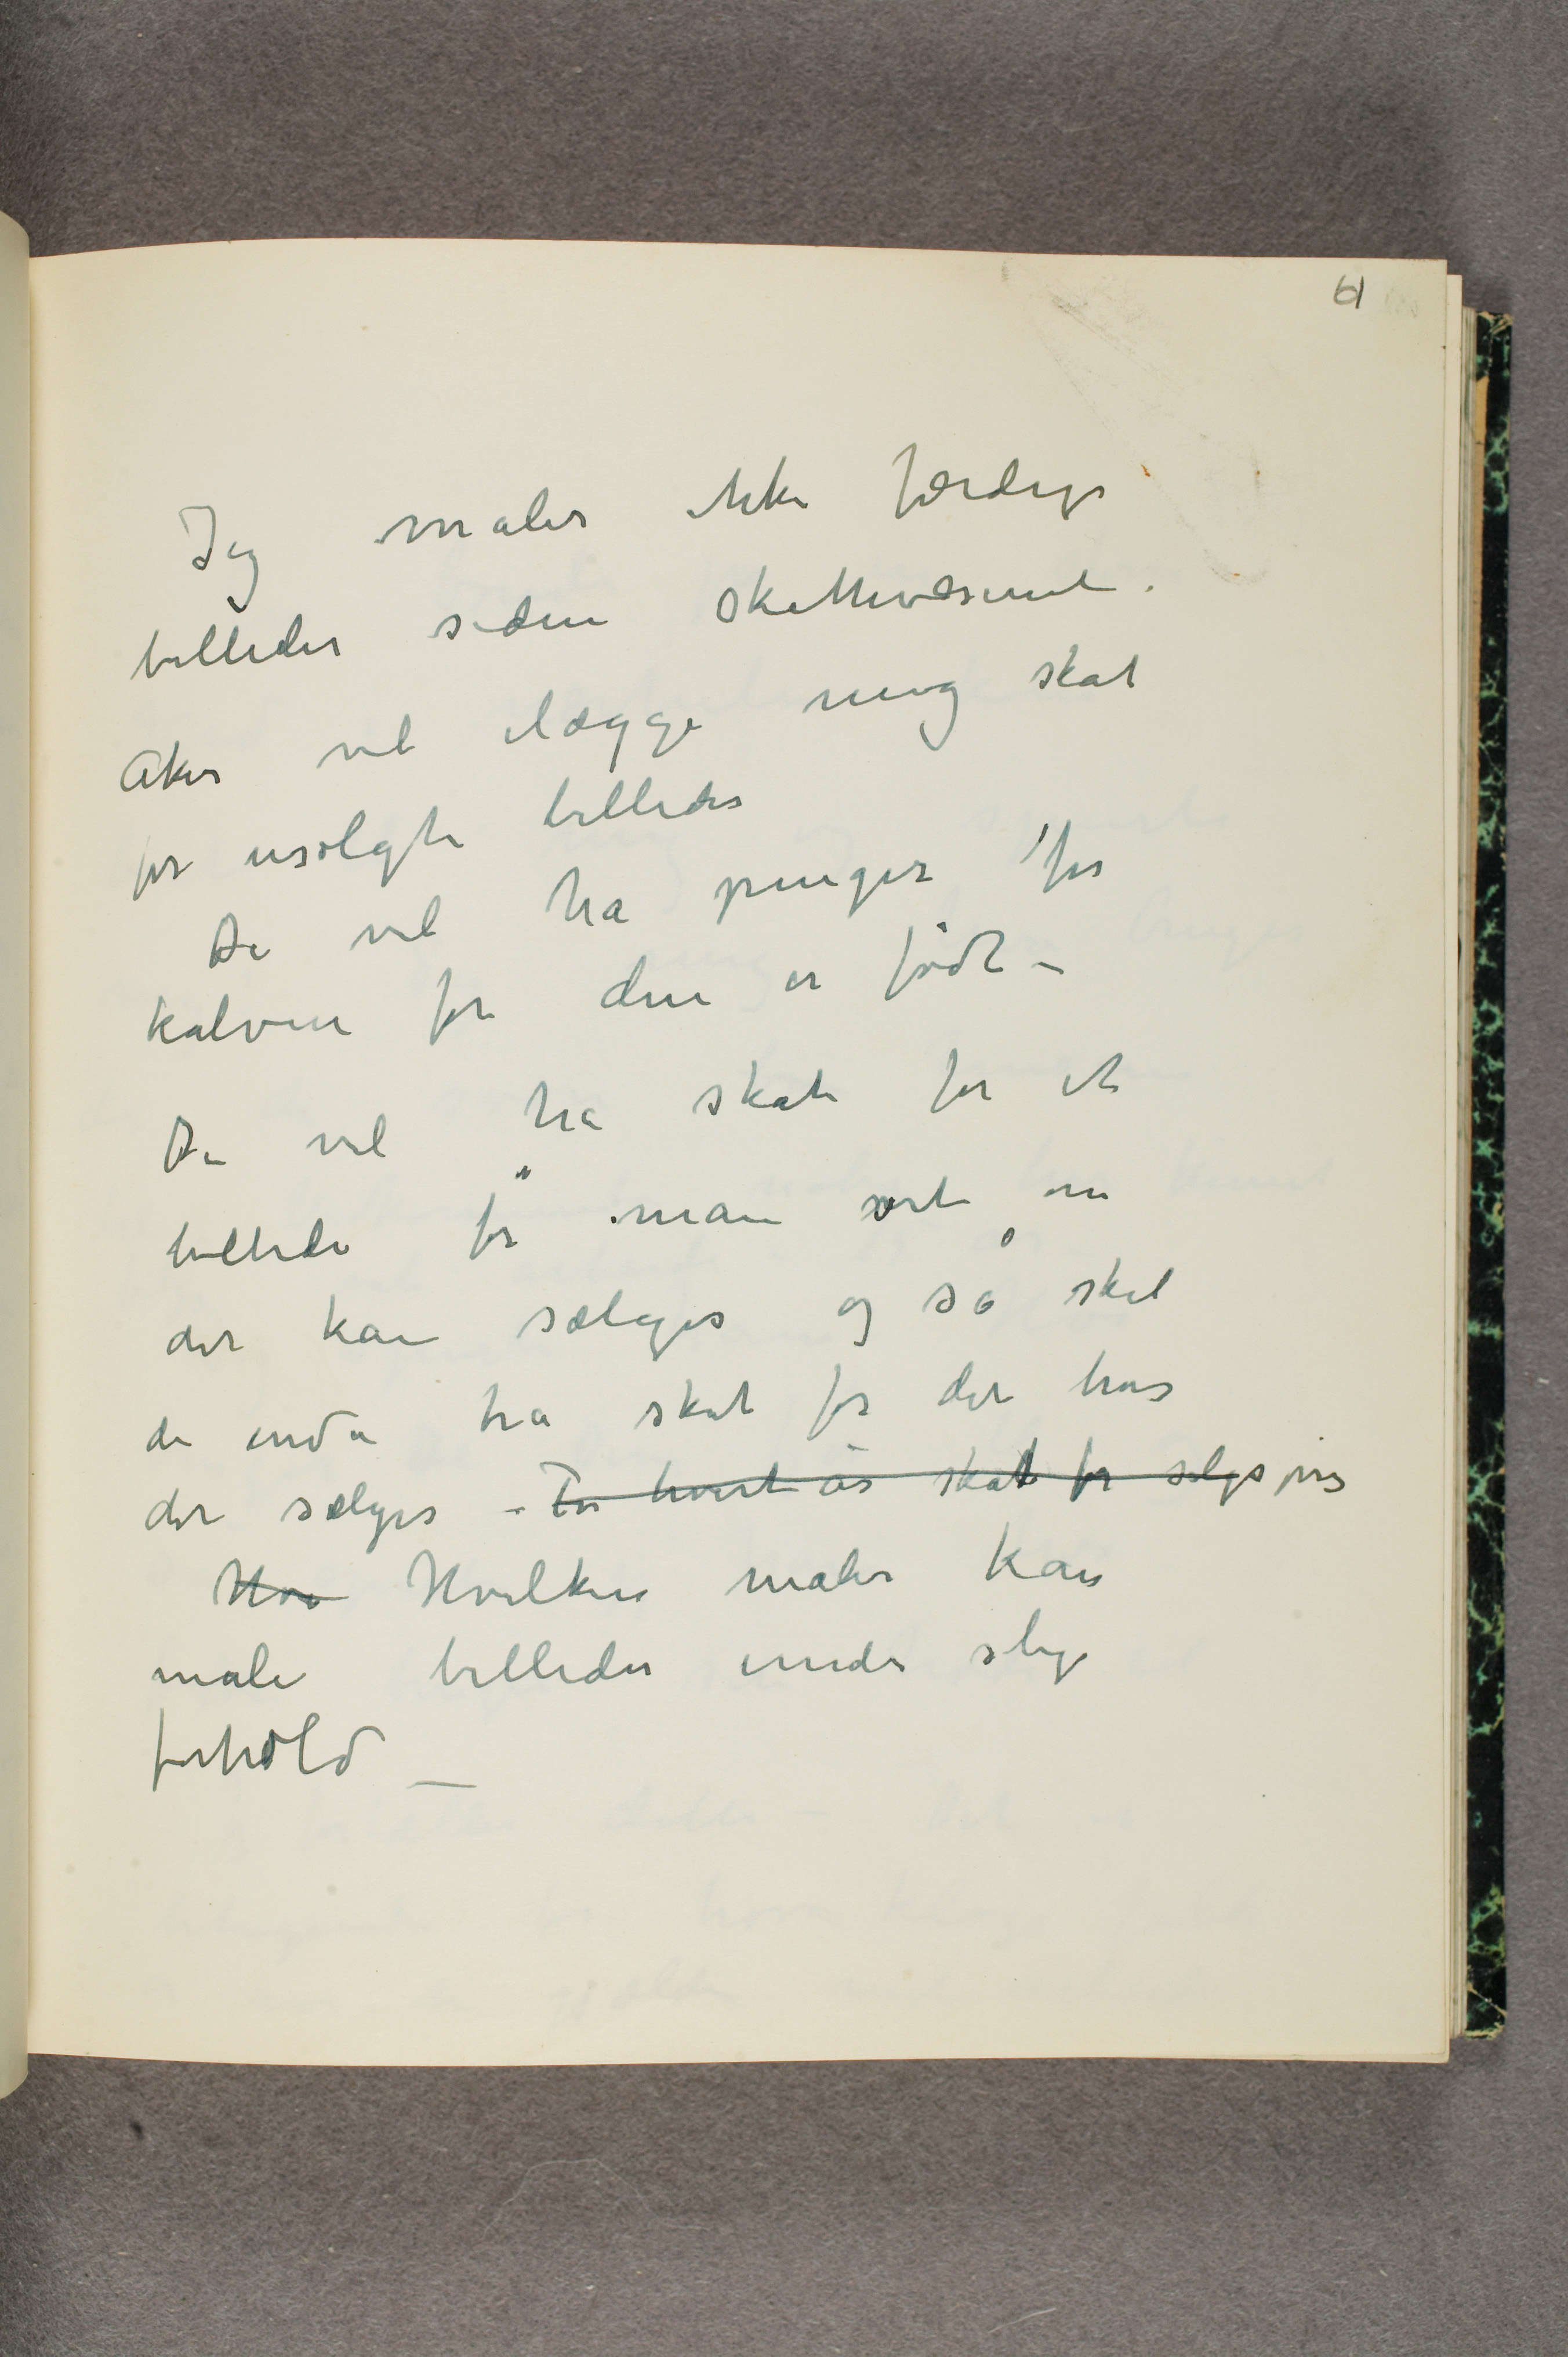 61
Jeg maler ikke færdige
billeder siden skattevæsenet i
Aker vil ilægge meg skat
for usolgte billeder
De vil ha penger for
kalven før den er født –
De vil ha skat for et
billede før man vet om
det kan sælges og så skal
de enda ha skat for det hvis
det sælges – For hvert år skat for salgspris
Hva Hvilken maler kan
male billeder under slige
forhold –